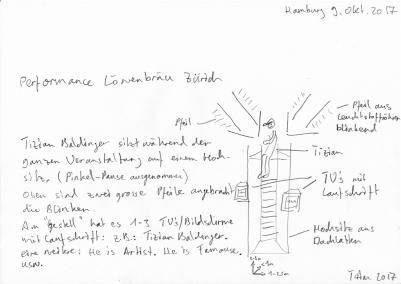 Hamburg 9. Okt. 2017
Performance Löwenbräu Zürich
Pfeil
Pfeil aus
Leuchtstoffröhren
blinkend
Tizian Baldinger sitzt während der
ganzen Veranstaltung auf einem Hoch-
sitz. (Pinkel-Pause ausgenommen)
Oben sind zwei grosse Pfeile angebracht
die Blinken.
Am "gestell" hat es 1-3 TV's/Bildschirme
mit Laufschrift: z.B.: Tizian Baldinger.
eine weitere: He is Artist. He is Famouse.
usw.
Tizian
TV's mit
Laufschrift
Hochsitz aus
Dachlatten
2017